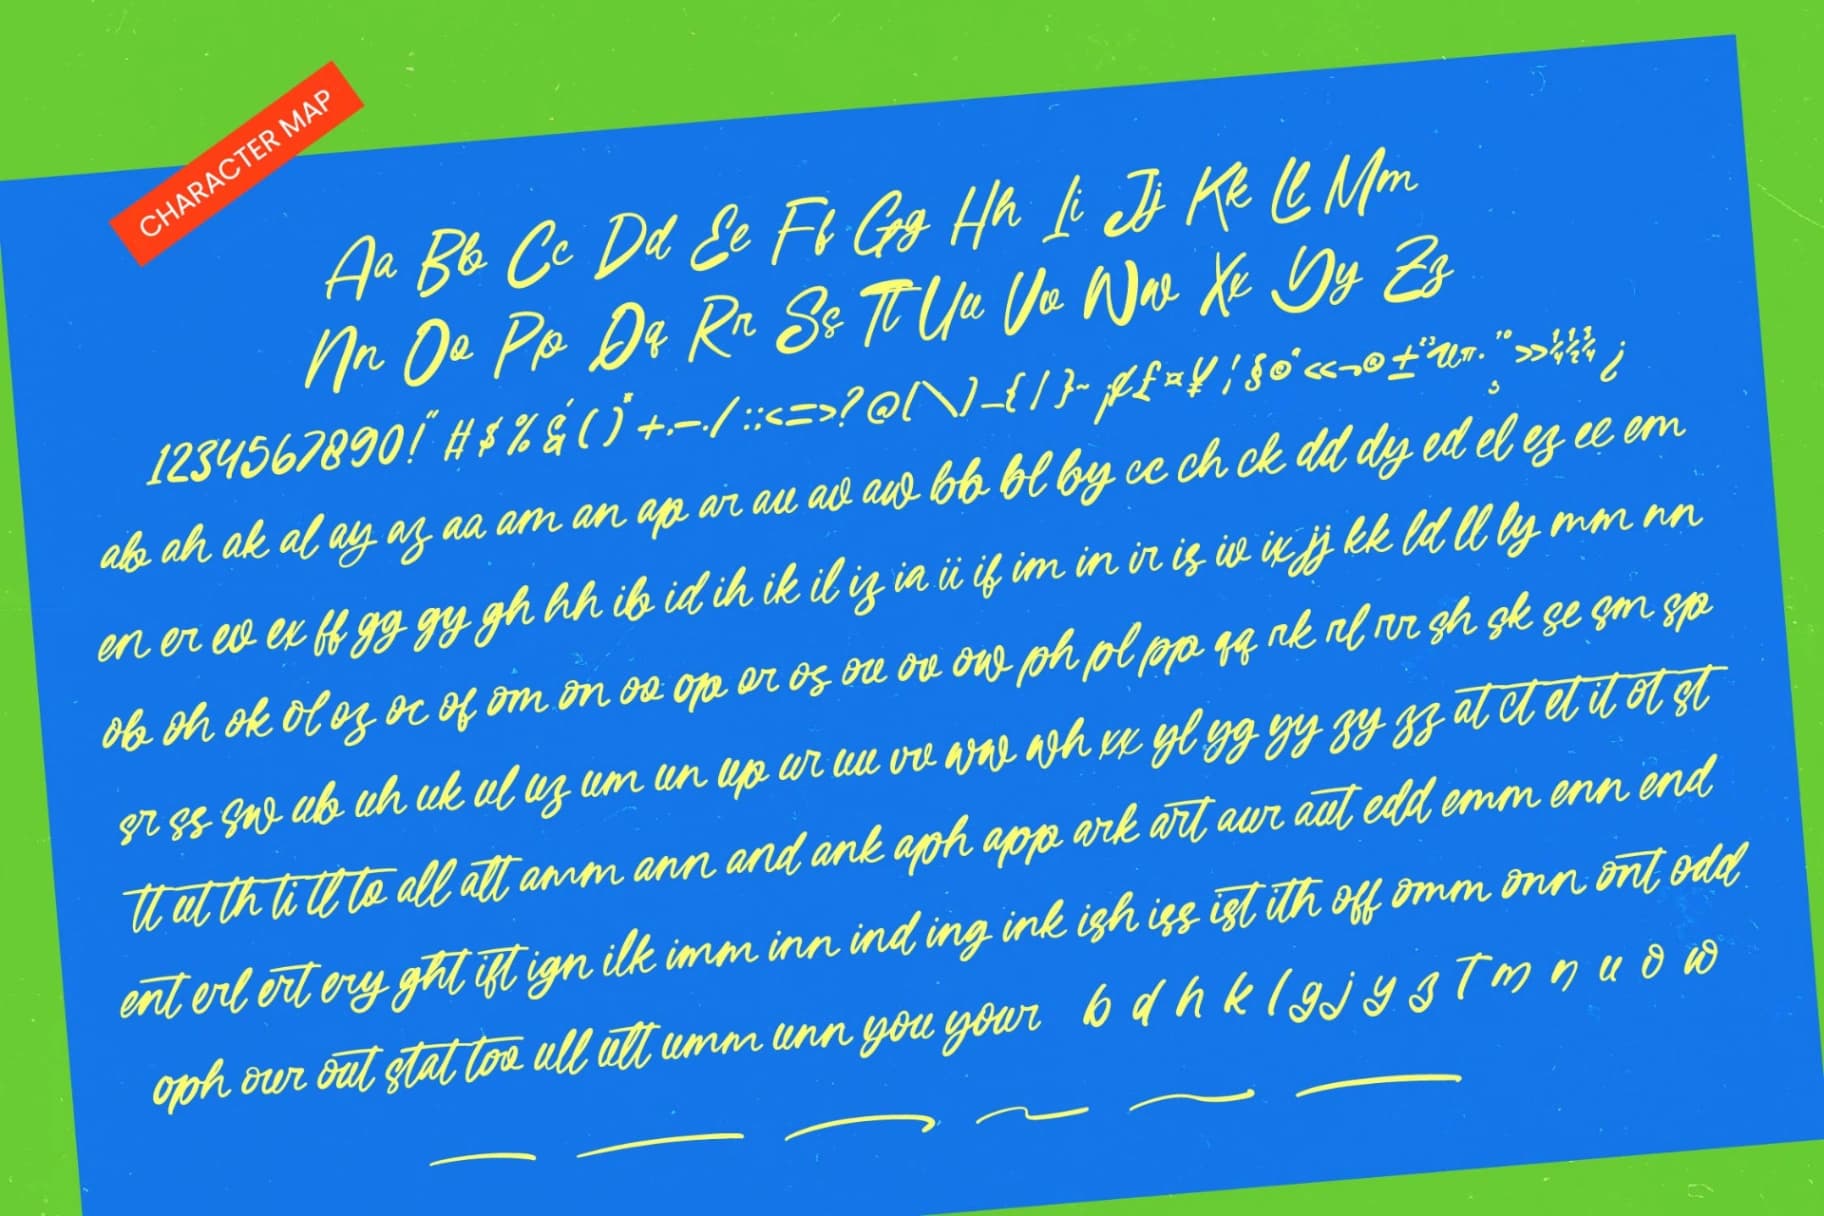 CHARACTER MAP
Aa Bb Cc Dd Ee Ff Gg Hh Ii Jj Kk Ll Mm
Nn Oo Pp Qq Rr Ss Tt Uu Vv Ww Xx Yy Zz
1234567890!" #$%&'()*+,-./:;<=>?@[\]_{|}~¡¢£¤¥¦§©ª«¬®±²³µ·¸¹º»¼½¾¿
ab ah ak al ay az aa am an ap ar au av aw bb bl by cc ch ck dd dy ed el ez ee em
en er ev ex ff gg gy gh hh ib id ih ik il iz ia ii if im in ir is iv ix jj kk ld ll ly mm nn
ob oh ok ol oz oc of om on oo op or os ou ov ow ph pl pp qq rk rl rr sh sk se sm sp
sr ss sw ub uh uk ul uz um un up ur uu vv ww wh xx yl yg yy zy zz at ct et it ot st
tt ut th ti tl to all att amm ann and ank aph app ark art aur aut edd emm enn end
ent erl ert ery ght ift ign ilk imm inn ind ing ink ish iss ist ith off omm onn ont odd
oph our out stat too ull utt umm unn you your b d h k l g j y z T m n u o w